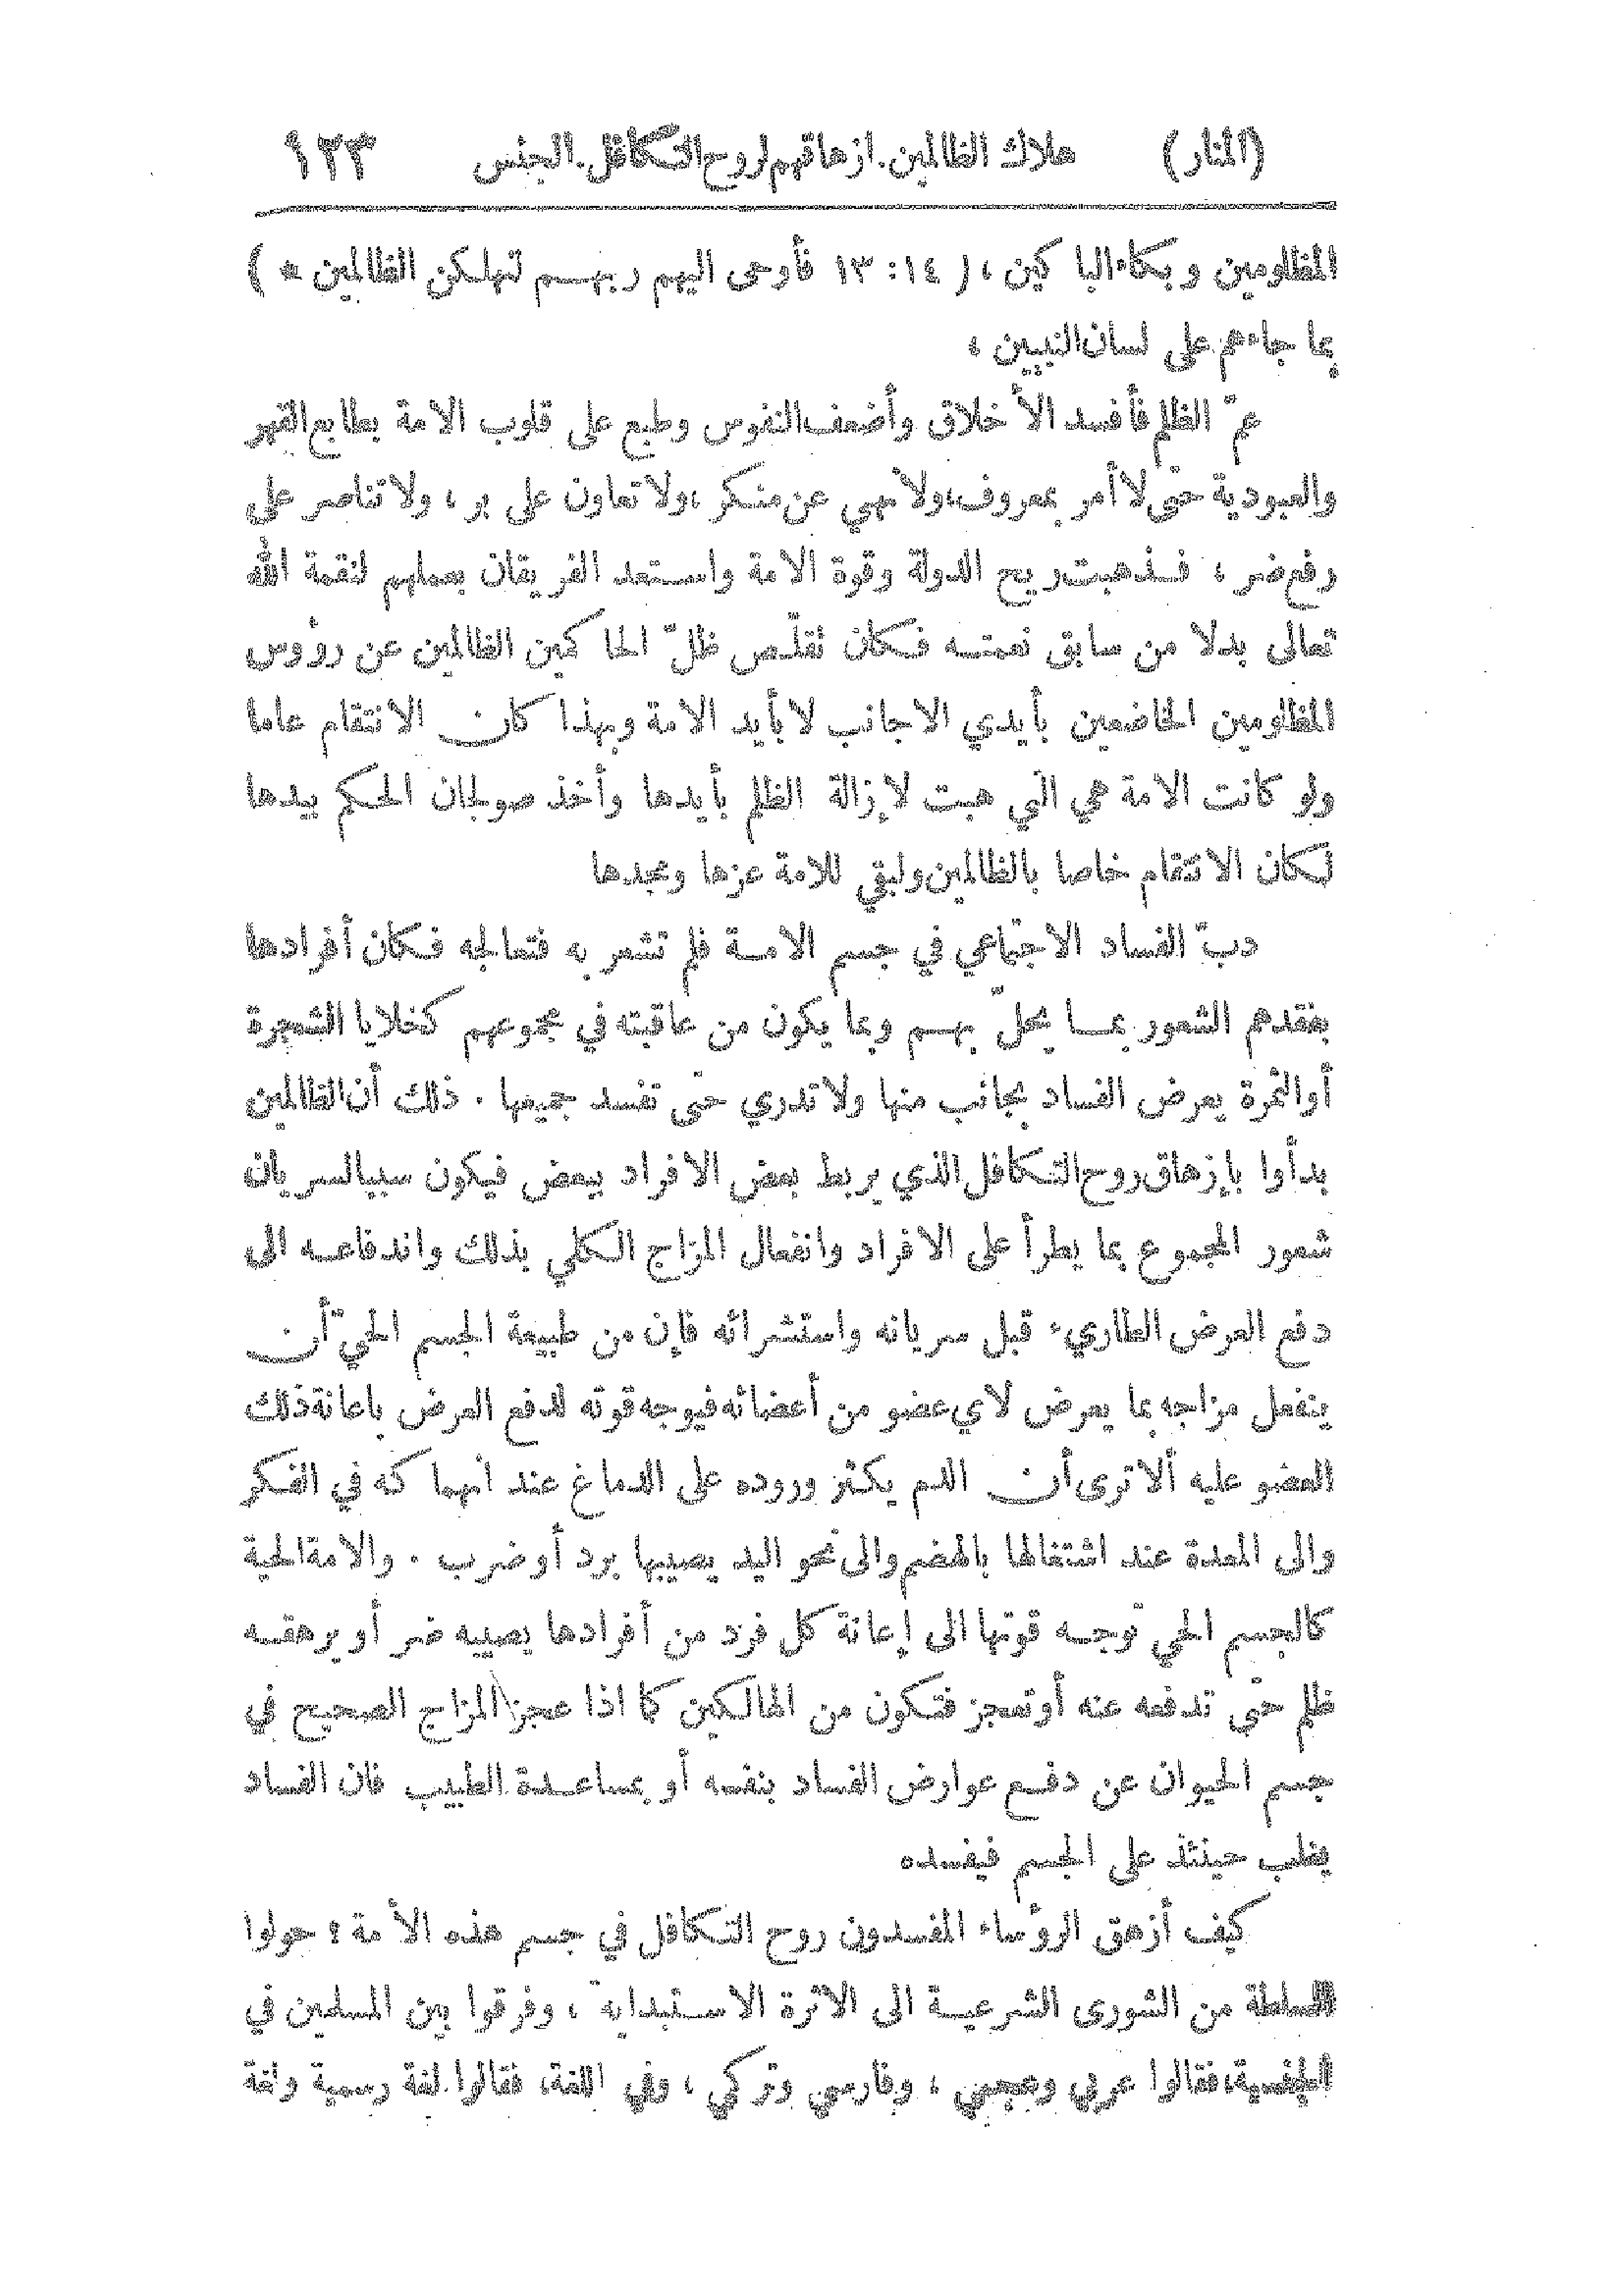 (المنار) هلاك الظالمين. ازهاقهم لروح التكافل. الجنس ٩٢٣
المظلومين وبكاء الباكين ، ( ١٤ : ١٣ فأوحى اليهم ربهم لنهلكن الظالمين * )
بما جاءهم على لسان النبيين ،
عمّ الظلم فأفسد الأخلاق وأضعف النفوس وطبع على قلوب الامة بطابع القهر
والعبودية حتى لا أمر بمعروف، ولا نهي عن منكر ، ولا تعاون على بر ، ولا تناصر على
رفع ضر ، فذهبت ريح الدولة وقوة الامة واستعد الفريقان بعملهم لنقمة الله
تعالى بدلا من سابق نعمته فكان تقلّص ظلّ الحاكمين الظالمين عن رؤوس
المظلومين الخاضعين بأيدي الاجانب لا بأيد الامة وبهذا كان الانتقام عاما
ولو كانت الامة هي التي هبت لإزالة الظلم بأيدها وأخذ صولجان الحكم بيدها
لكان الانتقام خاصا بالظالمين ولبقي للامة عزها ومجدها
دبّ الفساد الاجتماعي في جسم الامة فلم تشعر به فتعالجه فكان أفرادها
بفقدهم الشعور بما يحلّ بهم وبما يكون من عاقبته في مجموعهم كخلايا الشجرة
أو الثمرة يعرض الفساد بجانب منها ولا تدري حتى تفسد جميعها . ذلك أن الظالمين
بدأوا بإزهاق روح التكافل الذي يربط بعض الافراد ببعض فيكون سببا لسريان
شعور المجموع بما يطرأ على الافراد وانفعال المزاج الكلي بذلك واندفاعه الى
دفع العرض الطاريء قبل سريانه واستشرائه فإن من طبيعة الجسم الحيّ أن
ينفعل مزاجه بما يعرض لاي عضو من أعضائه فيوجه قوته لدفع العرض باعانة ذلك
العضو عليه ألا ترى أن الدم يكثر وروده على الدماغ عند انهماكه في الفكر
والى المعدة عند اشتغالها بالهضم والى نحو اليد يصيبها برد أو ضرب . والامة الحية
كالجسم الحي توجه قوتها الى إعانة كل فرد من أفرادها يصيبه ضر أو يرهقه
ظلم حتى تدفعه عنه أو تعجز فتكون من الهالكين كما اذا عجز المزاج الصحيح في
جسم الحيوان عن دفع عوارض الفساد بنفسه أو بمساعدة الطبيب فان الفساد
يغلب حينئذ على الجسم فيفسده
كيف أزهق الرؤساء المفسدون روح التكافل في جسم هذه الأمة ؟ حولوا
السلطة من الشورى الشرعية الى الاثرة الاستبدايه ، وفرقوا بين المسلمين في
الجنسية، فقالوا عربي وعجمي ، وفارسي وتركي ، وفي اللغة، فقالوا لغة رسمية ولغة